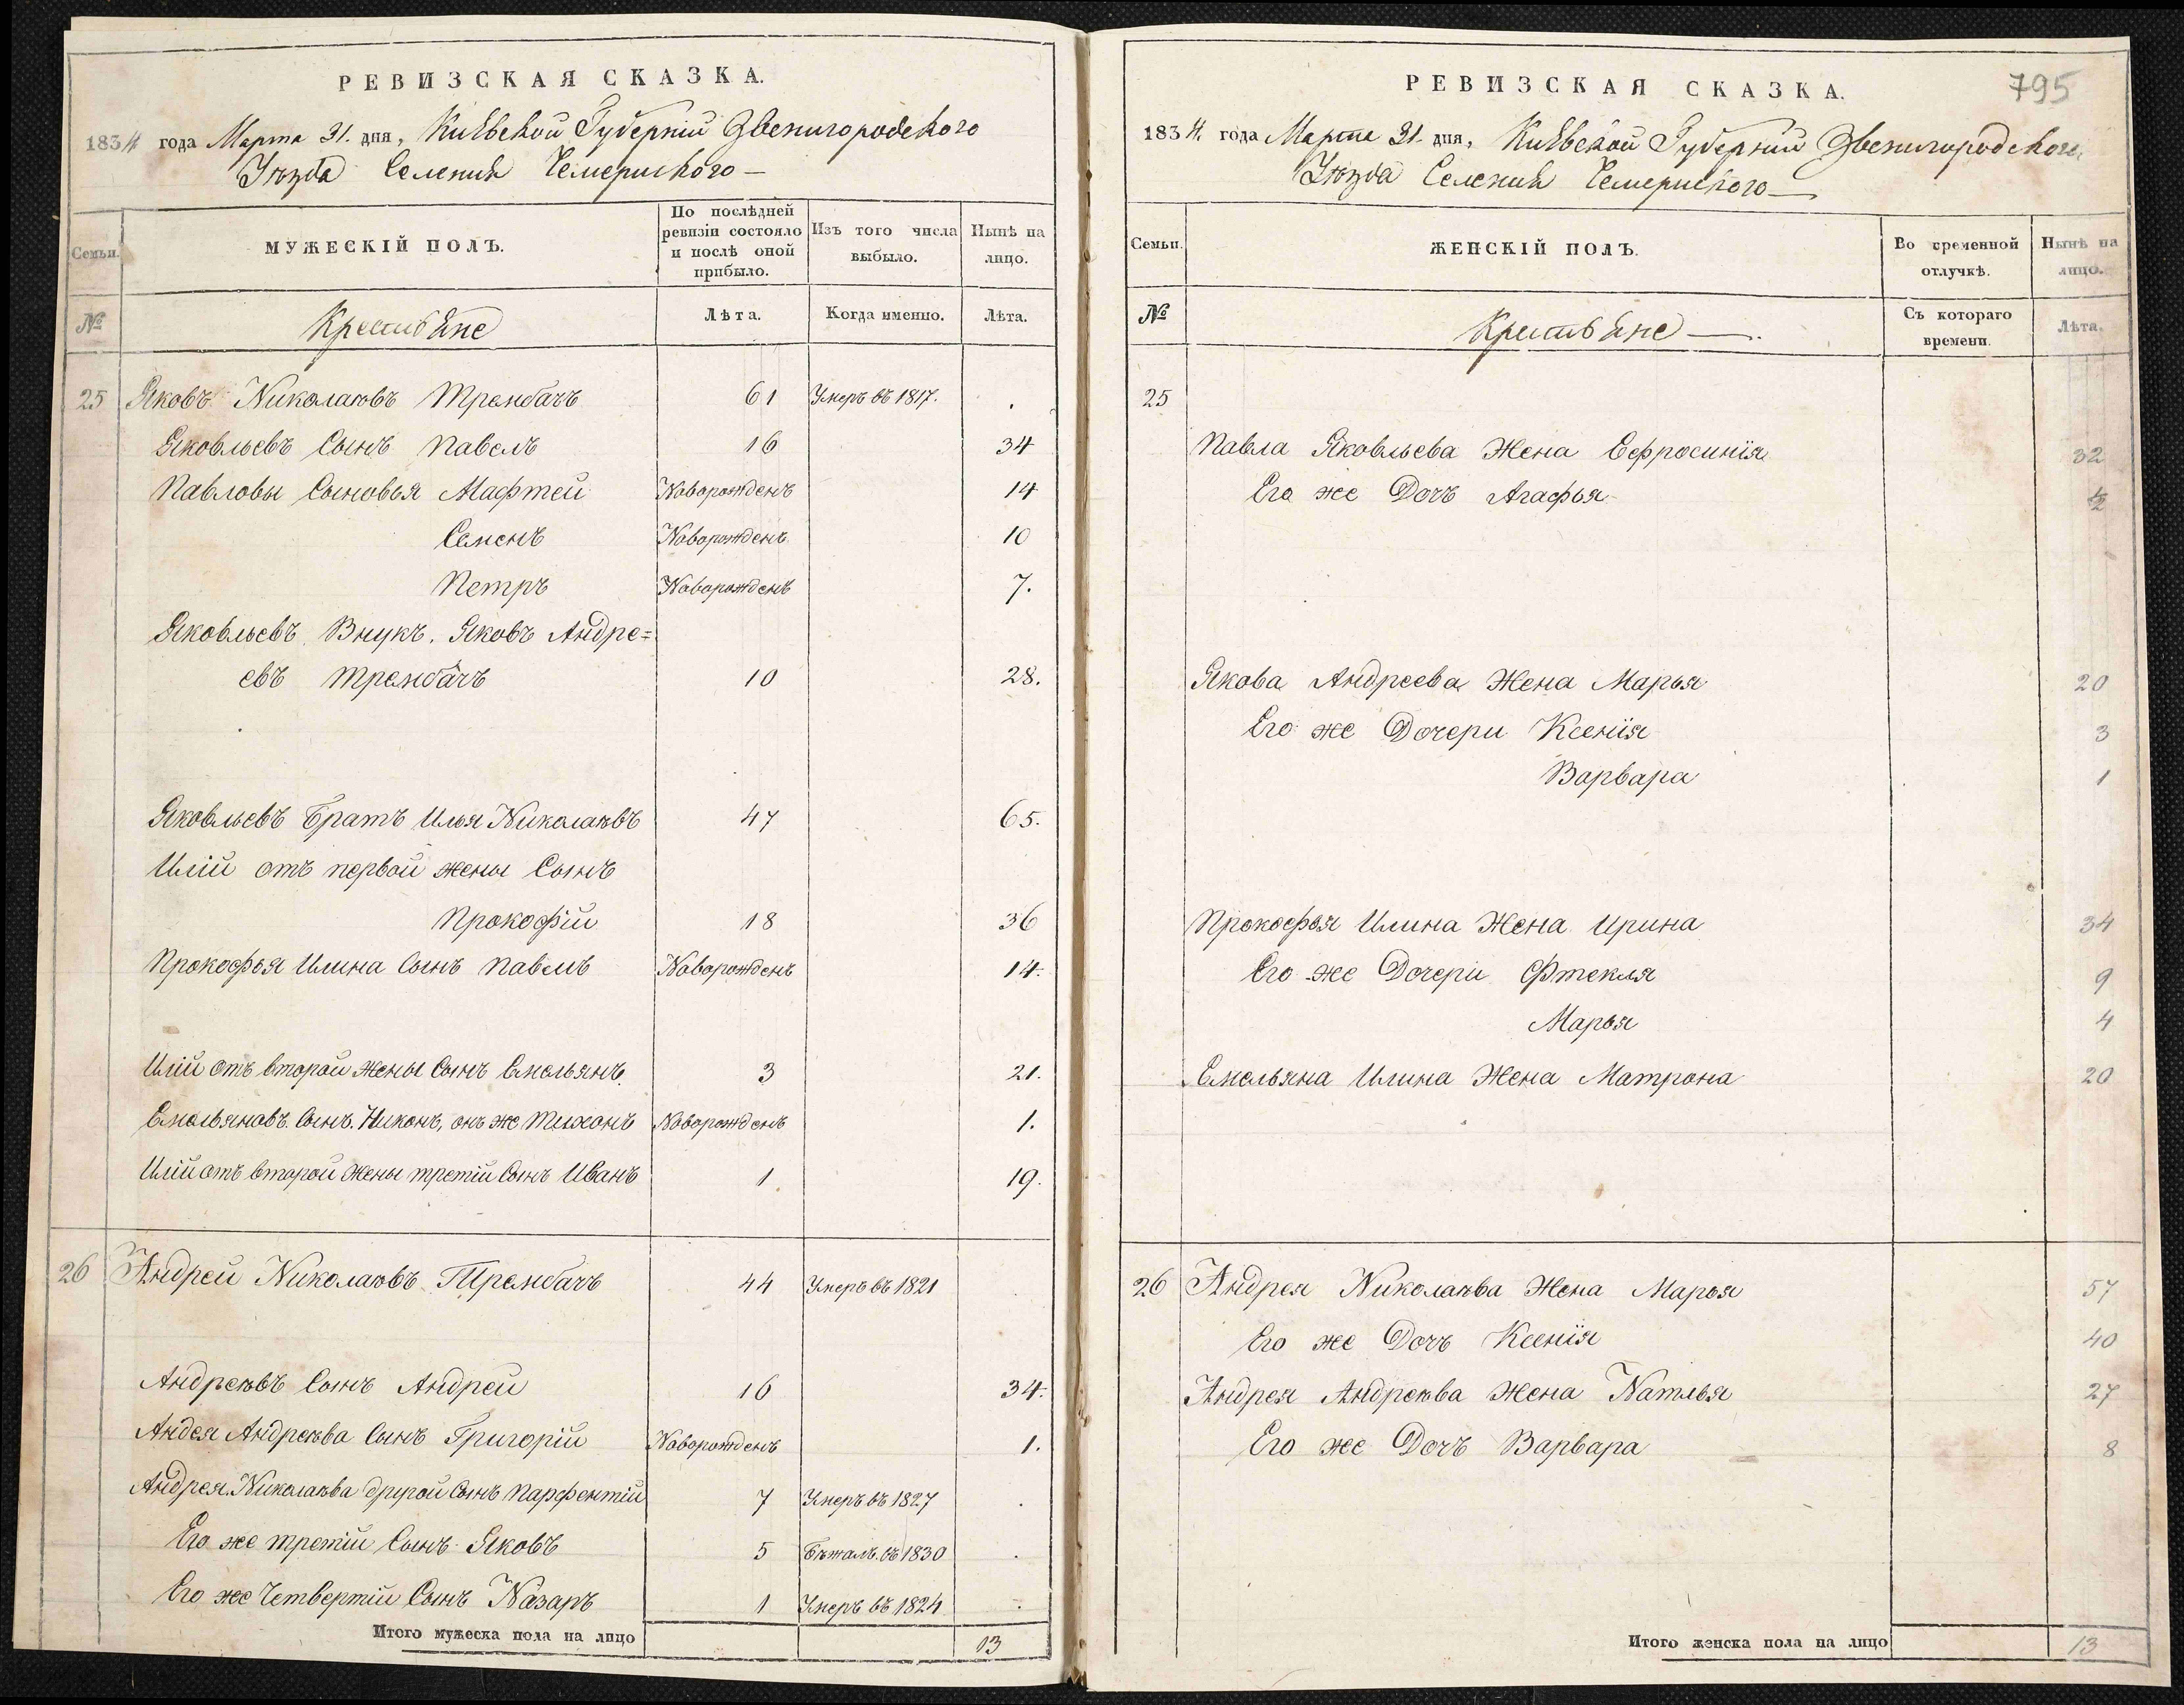 РЕВИЗСКАЯ СКАЗКА.
1834 года Марта 31. дня, Кіевской Губерніи Звенигородского
Уѣзда Селенія Чемериского —
Семьи.
МУЖЕСКІЙ ПОЛЪ.
По послѣдней
ревизіи состояло
и послѣ оной
прибыло.
Изъ того числа
выбыло.
Нынѣ на
лицо.
№
Крестьяне
Лѣта.
Когда именно.
Лѣта.
25 Яковъ Николаювъ Трембачъ 61 Умеръ въ 1817. .
Яковльевъ Сынъ Павелъ 16 34
Павловы Сыновья Мафтей Новорожденъ 14
Семенъ Новорожденъ 10
Петръ Новорожденъ 7.
Яковльевъ Внукъ. Яковъ Андре=
евъ Трембачъ 10 28.
Яковльевъ Братъ Илья Николаювъ 47 65.
Иліи отъ первой жены Сынъ
Прокофій 18 36
Прокофья Илина Сынъ Павелъ Новорожденъ 14.
Иліи отъ второй жены Сынъ Емельянъ. 3 21.
Емельяновъ. Сынъ. Никонъ, онъ же Тихонъ Новорожденъ 1.
Иліи отъ второй жены третій Сынъ Иванъ 1. 19.
26 Андрей Николаювъ Трембачъ 44 Умеръ въ 1821
Андреювъ Сынъ Андрей 16 34.
Андея Андреюва Сынъ Григорій Новорожденъ 1.
Андрея. Николаюва другой Сынъ Парфентій 7 Умеръ въ 1827 .
Его же третій Сынъ Яковъ 5 Бѣжалъ. въ 1830 .
Его же Четвертій Сынъ Назаръ 1 Умеръ въ 1824 .
Итого мужеска пола на лицо 13
795
РЕВИЗСКАЯ СКАЗКА.
1834. года Марта 31. дня, Кіевской Губерніи Звенигородского,
Уѣзда Селенія Чемериского —
Семьи.
ЖЕНСКІЙ ПОЛЪ.
Во временной
отлучкѣ.
Нынѣ на
лицо.
№
Крестьяне —.
Съ котораго
времени.
Лѣта.
25
Павла Яковльева Жена Ефросинія 32
Его же Дочъ Агафья
Якова Андреева Жена Марья 20
Его же Дочери Ксенія 3
Варвара 1
Прокофья Илина Жена Ирина 34
Его же Дочери Фтекля 9
Марья 4
Емельяна Илина Жена Матрона 20
26 Андрея Николаюва Жена Марья 57
Его же Дочъ Ксенія 40
Андрея Андреюва Жена Наталья 27
Его же Дочъ Варвара 8
Итого женска пола на лицо 13